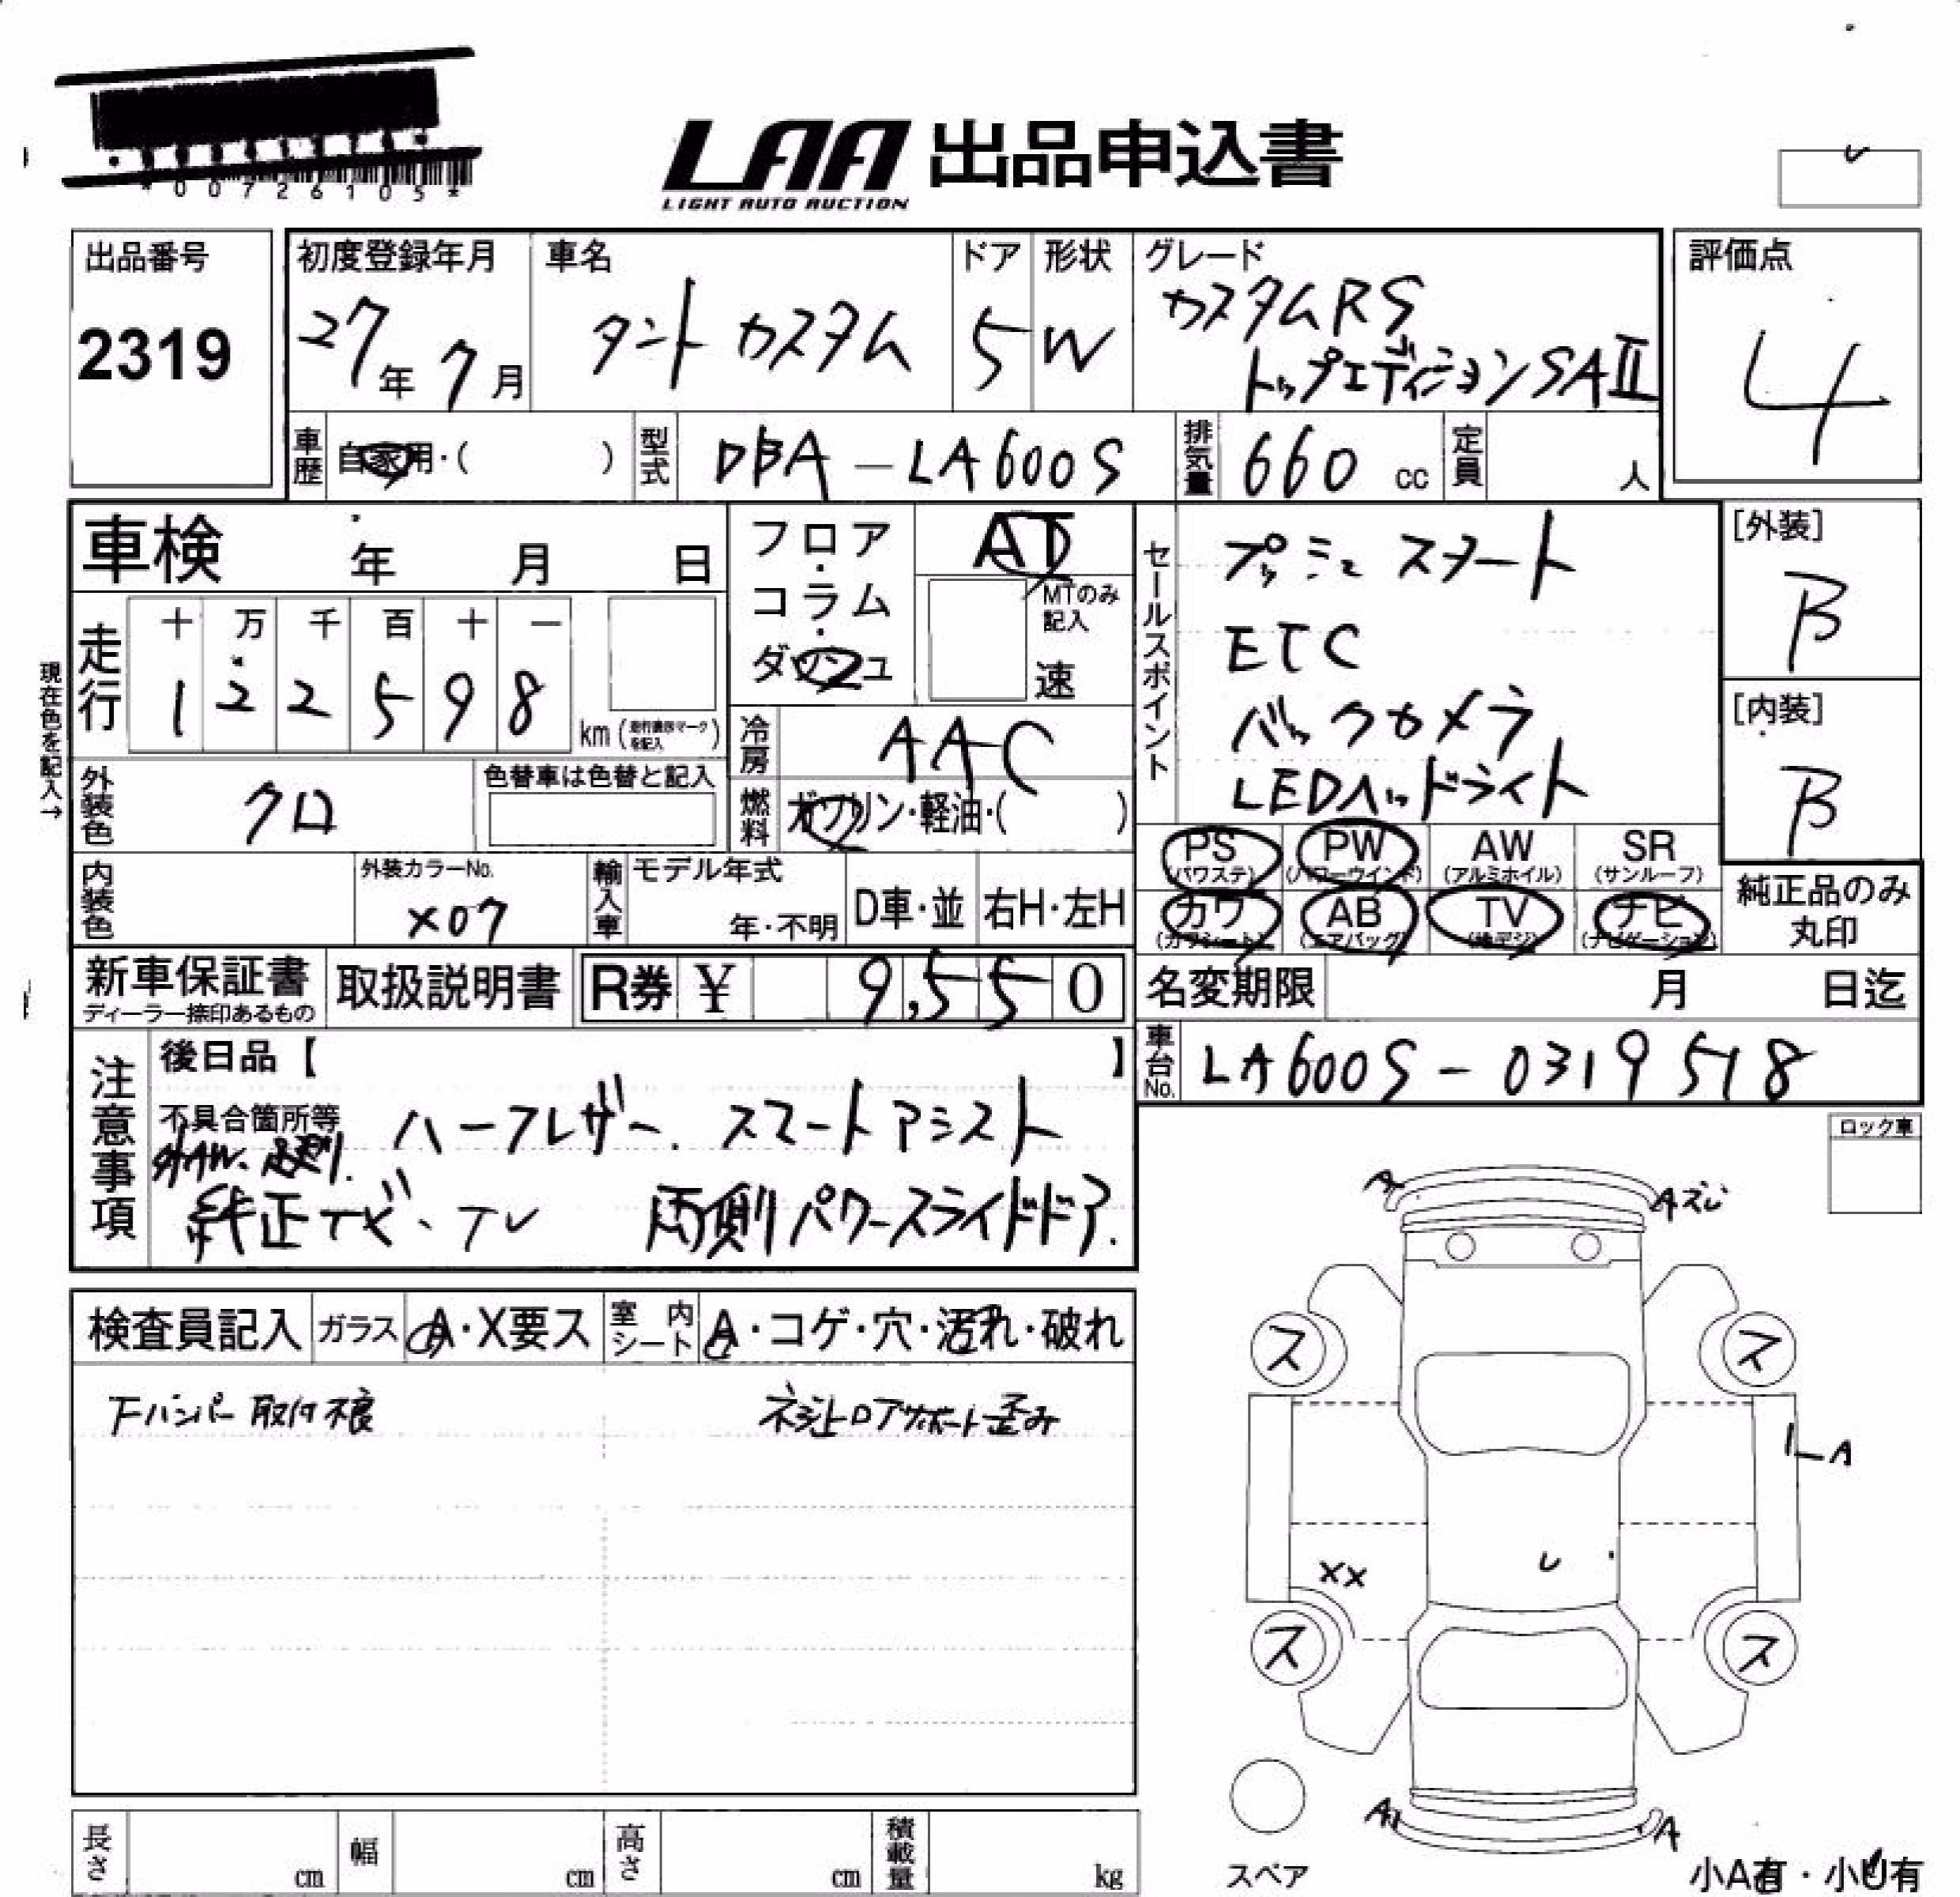 *00726105*
LAA 出品申込書
LIGHT AUTO AUCTION
出品番号
2319
初度登録年月
27年 7月
車名
タント カスタム
ドア
5
形状
W
グレード
カスタムRS
トップエディションSAⅡ
評価点
4
車歴
自家用・( )
型式
DBA-LA600S
排気量
660 cc
定員
人
車検 年 月 日
フロア・コラム・ダッシュ
AT
MTのみ記入
速
現在色を記入→
走行
十 万 千 百 十 一
1 2 2 5 9 8
km(走行違反マークを記入)
冷房
AAC
外装色
クロ
色替車は色替と記入
燃料
ガソリン・軽油・( )
内装色
外装カラーNo.
X07
輸入車
モデル年式
年・不明
D車・並
右H・左H
セールスポイント
プッシュスタート
ETC
バックカメラ
LEDヘッドライト
[外装]
B
[内装]
B
PS(パワステ)
PW(パワーウインド)
AW(アルミホイル)
SR(サンルーフ)
カワ(カワシート)
AB(エアバッグ)
TV(地デジ)
ナビ(ナビゲーション)
純正品のみ丸印
新車保証書
ディーラー捺印あるもの
取扱説明書
R券 ¥ 9,550
名変期限 月 日迄
車台No.
LA600S-0319518
注意事項
後日品【 】
不具合箇所等
ハーフレザー. スマートアシスト
外AW.
純正ナビ・TV 両側パワースライドドア.
ロック車
検査員記入
ガラス
A・X要ス
室内シート
A・コゲ・穴・汚れ・破れ
Fバンパー取付不良
ネジ止ロアサポート歪み
A
Aズレ
ス
ス
A
XX
U
ス
ス
A
A
スペア
小A有・小U有
長さ cm
幅 cm
高さ cm
積載量 kg